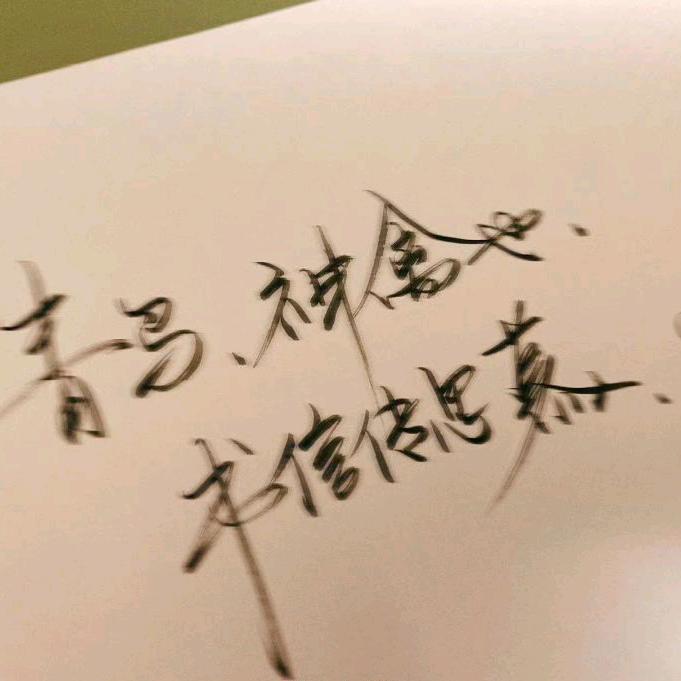 青鸟、神禽也、
书信传思慕、